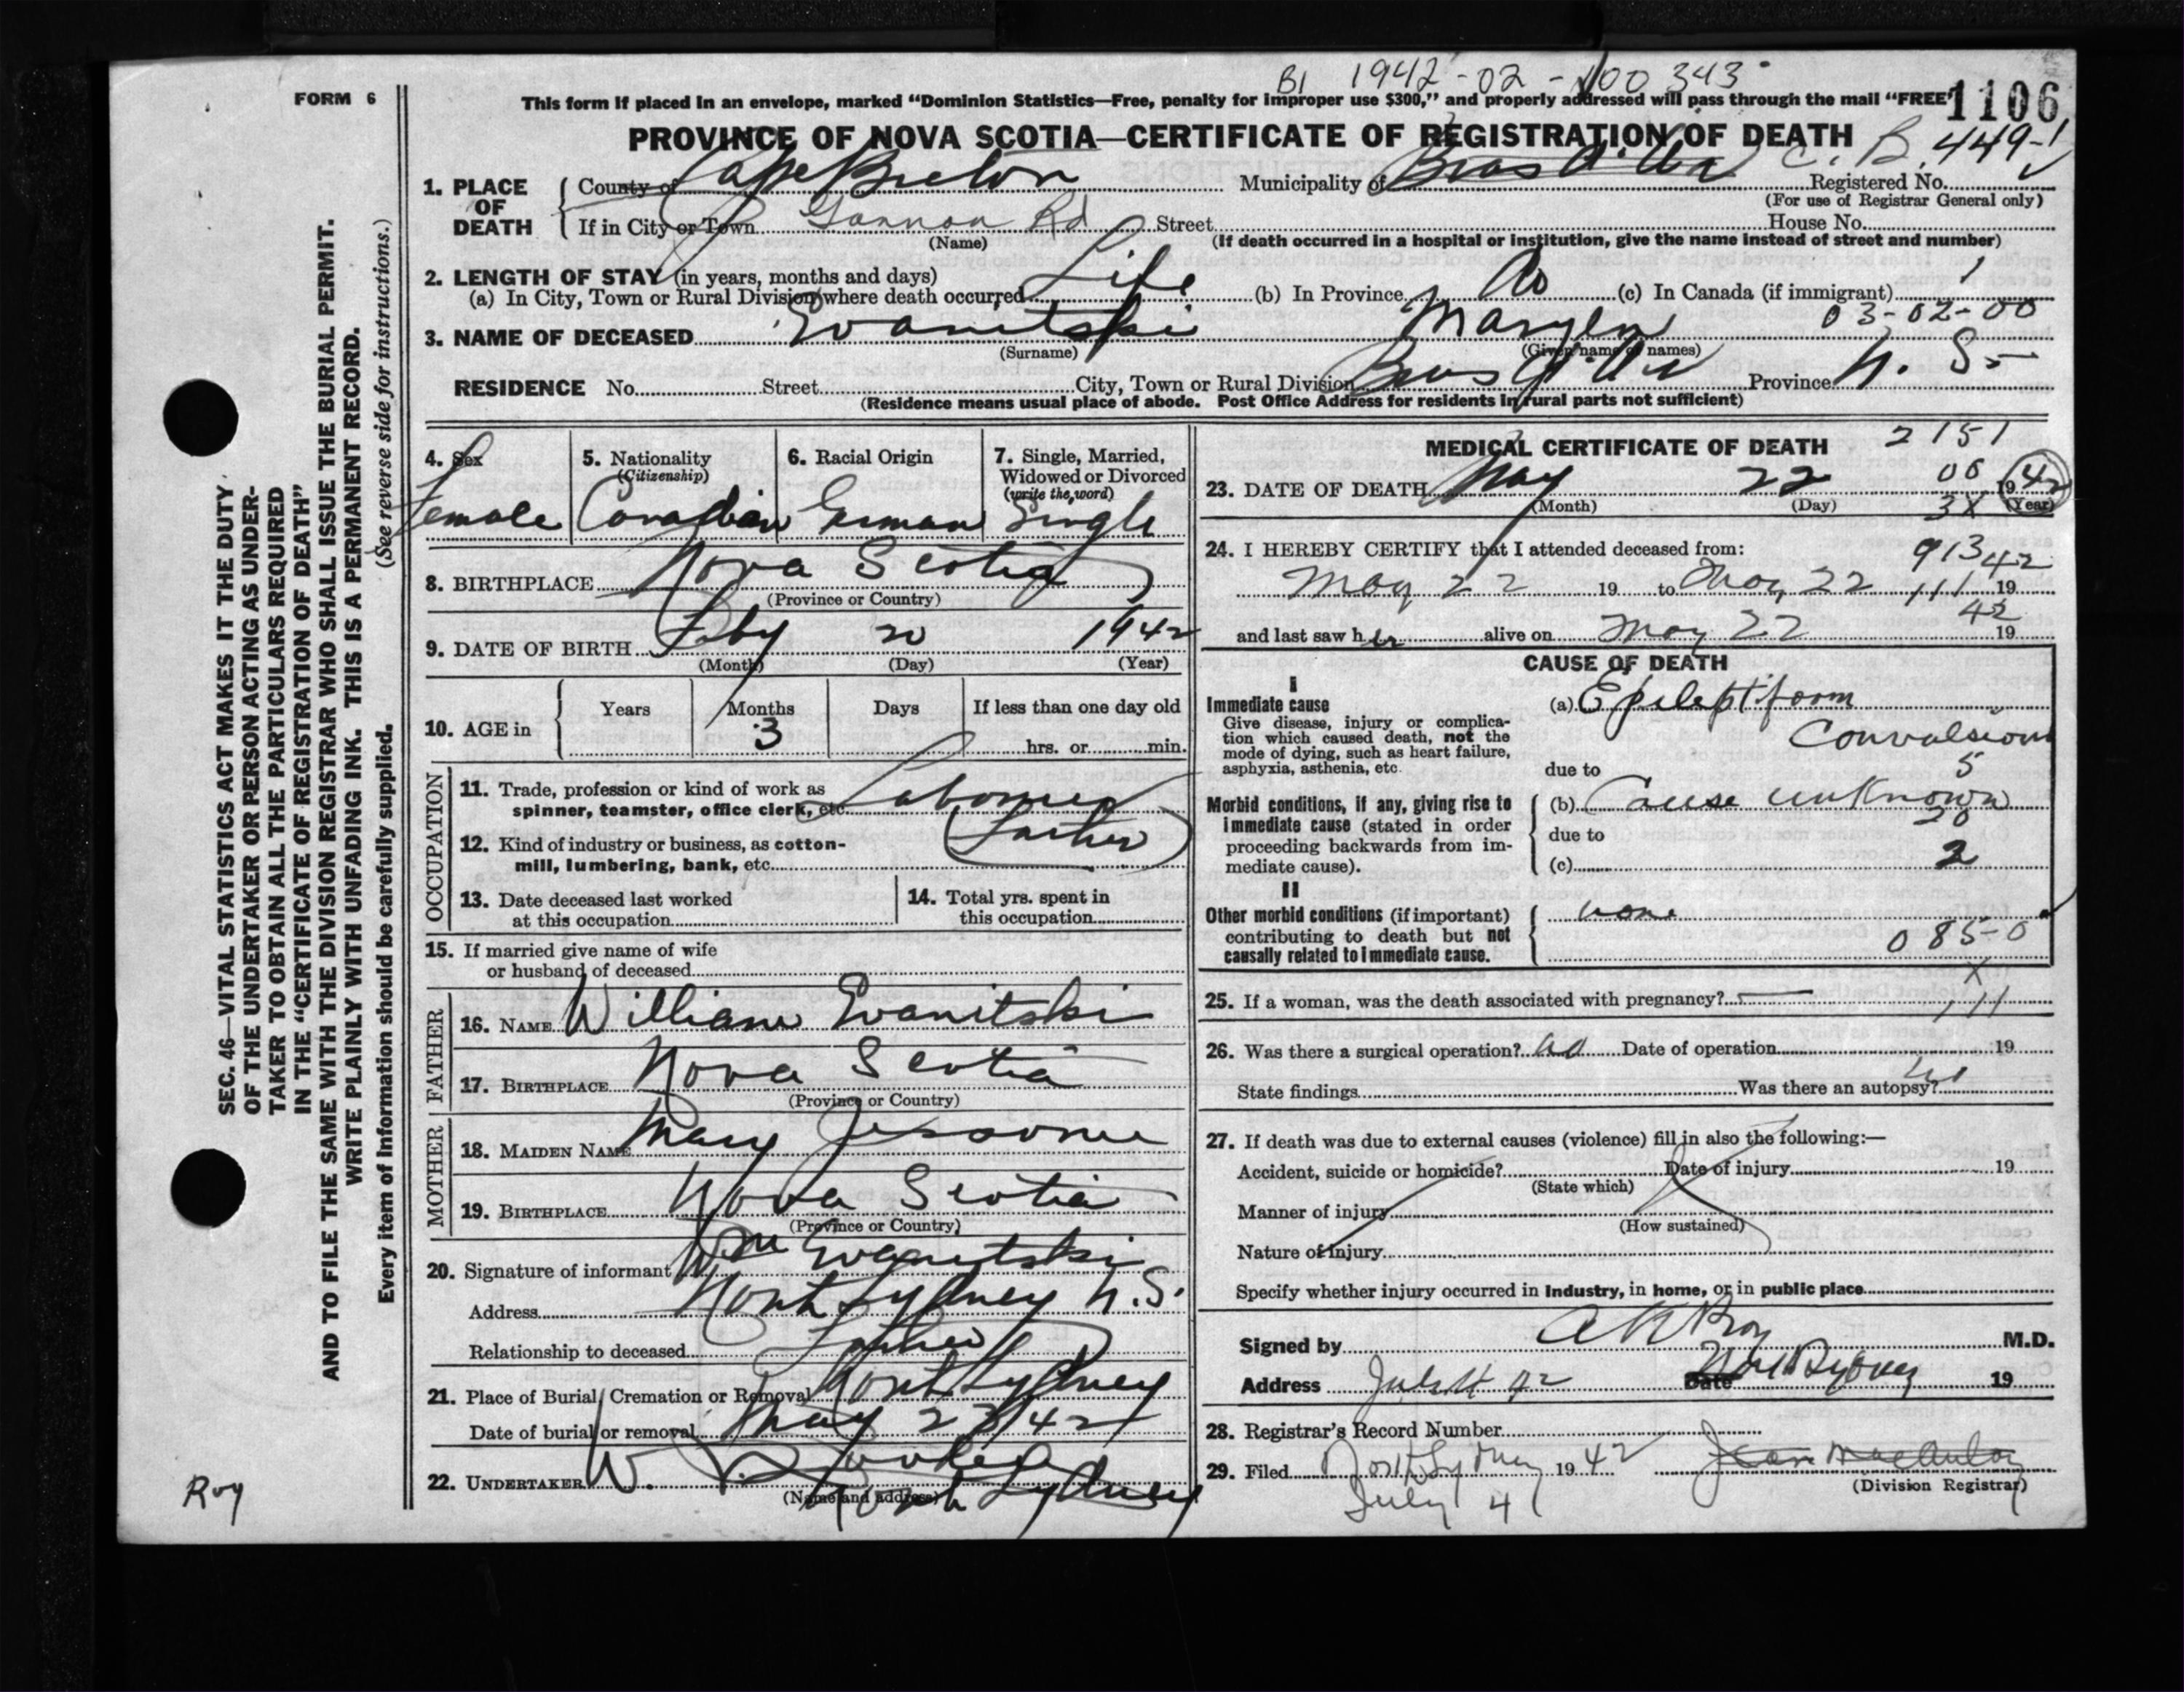 B1 1942-02-100343
FORM 6
This form if placed in an envelope, marked “Dominion Statistics—Free, penalty for improper use $300,” and properly addressed will pass through the mail “FREE”
1106
PROVINCE OF NOVA SCOTIA—CERTIFICATE OF REGISTRATION OF DEATH
C. B. 449-1
1. PLACE OF DEATH
County of Cape Breton Municipality of Bras d'Or Registered No.
(For use of Registrar General only)
If in City or Town Gannon Rd Street House No.
(Name) (If death occurred in a hospital or institution, give the name instead of street and number)
2. LENGTH OF STAY (in years, months and days)
(a) In City, Town or Rural Division where death occurred Life (b) In Province Do (c) In Canada (if immigrant) 1
03-02-00
3. NAME OF DECEASED Evanitski
(Surname) (Given name or names)
RESIDENCE No. Street City, Town or Rural Division Bras d'Or Province N. S.
(Residence means usual place of abode. Post Office Address for residents in rural parts not sufficient)
4. Sex 5. Nationality (Citizenship) 6. Racial Origin 7. Single, Married, Widowed or Divorced (write the word)
Female Canadian German Single
8. BIRTHPLACE Nova Scotia
(Province or Country)
9. DATE OF BIRTH Feby 20 1942
(Month) (Day) (Year)
10. AGE in Years Months Days If less than one day old
3 hrs. or min.
OCCUPATION
11. Trade, profession or kind of work as spinner, teamster, office clerk, etc. Laborer
(Father)
12. Kind of industry or business, as cotton-mill, lumbering, bank, etc.
13. Date deceased last worked at this occupation
14. Total yrs. spent in this occupation
15. If married give name of wife or husband of deceased
FATHER
16. NAME William Evanitski
17. BIRTHPLACE Nova Scotia
(Province or Country)
MOTHER
18. MAIDEN NAME Mary Jessome
19. BIRTHPLACE Nova Scotia
(Province or Country)
20. Signature of informant Wm Evanitski
Address North Sydney N.S.
Relationship to deceased Father
21. Place of Burial, Cremation or Removal North Sydney
Date of burial or removal May 23/42
22. UNDERTAKER W.
(Name and address) North Sydney
MEDICAL CERTIFICATE OF DEATH 2151
23. DATE OF DEATH May 22 00 1942
(Month) (Day) 3X (Year)
24. I HEREBY CERTIFY that I attended deceased from: 913
May 22 19 to May 22 111 19 42
and last saw her alive on May 22 19 42
CAUSE OF DEATH
I
Immediate cause
Give disease, injury or complication which caused death, not the mode of dying, such as heart failure, asphyxia, asthenia, etc.
(a) Epileptiform
Convulsions
due to 5
Morbid conditions, if any, giving rise to immediate cause (stated in order proceeding backwards from immediate cause).
(b) Cause unknown
due to 20
(c) 2
II
Other morbid conditions (if important) contributing to death but not causally related to immediate cause.
none
085-0
X
25. If a woman, was the death associated with pregnancy? — 111
26. Was there a surgical operation? no Date of operation 19
State findings Was there an autopsy? no
27. If death was due to external causes (violence) fill in also the following:—
Accident, suicide or homicide? Date of injury 19
(State which)
Manner of injury
(How sustained)
Nature of injury
Specify whether injury occurred in Industry, in home, or in public place
Signed by Roy M.D.
Address July 4 42 Date North Sydney 19
28. Registrar's Record Number
29. Filed North Sydney 1942 Jean MacAulay
July 4 (Division Registrar)
SEC. 46—VITAL STATISTICS ACT MAKES IT THE DUTY
OF THE UNDERTAKER OR PERSON ACTING AS UNDER-
TAKER TO OBTAIN ALL THE PARTICULARS REQUIRED
IN THE “CERTIFICATE OF REGISTRATION OF DEATH”
AND TO FILE THE SAME WITH THE DIVISION REGISTRAR WHO SHALL ISSUE THE BURIAL PERMIT.
WRITE PLAINLY WITH UNFADING INK. THIS IS A PERMANENT RECORD.
Every item of information should be carefully supplied. (See reverse side for instructions.)
Roy